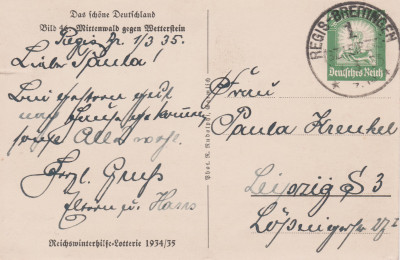 Das schöne Deutschland
Bild 46 Mittenwald gegen Wetterstein
Regis Br. 1/3 35.
Liebe Paula!
Bin gestern gut
nach Hause gekommen
sonst Alles wohl.
Herzl. Gruß
Eltern u. Hans
Reichswinterhilfe-Lotterie 1934/35
Phot. R. Rudolph
REGIS-BREITINGEN
Deutsches Reich
Frau
Paula Krenkel
Leipzig S 3
Lößnigerstr.